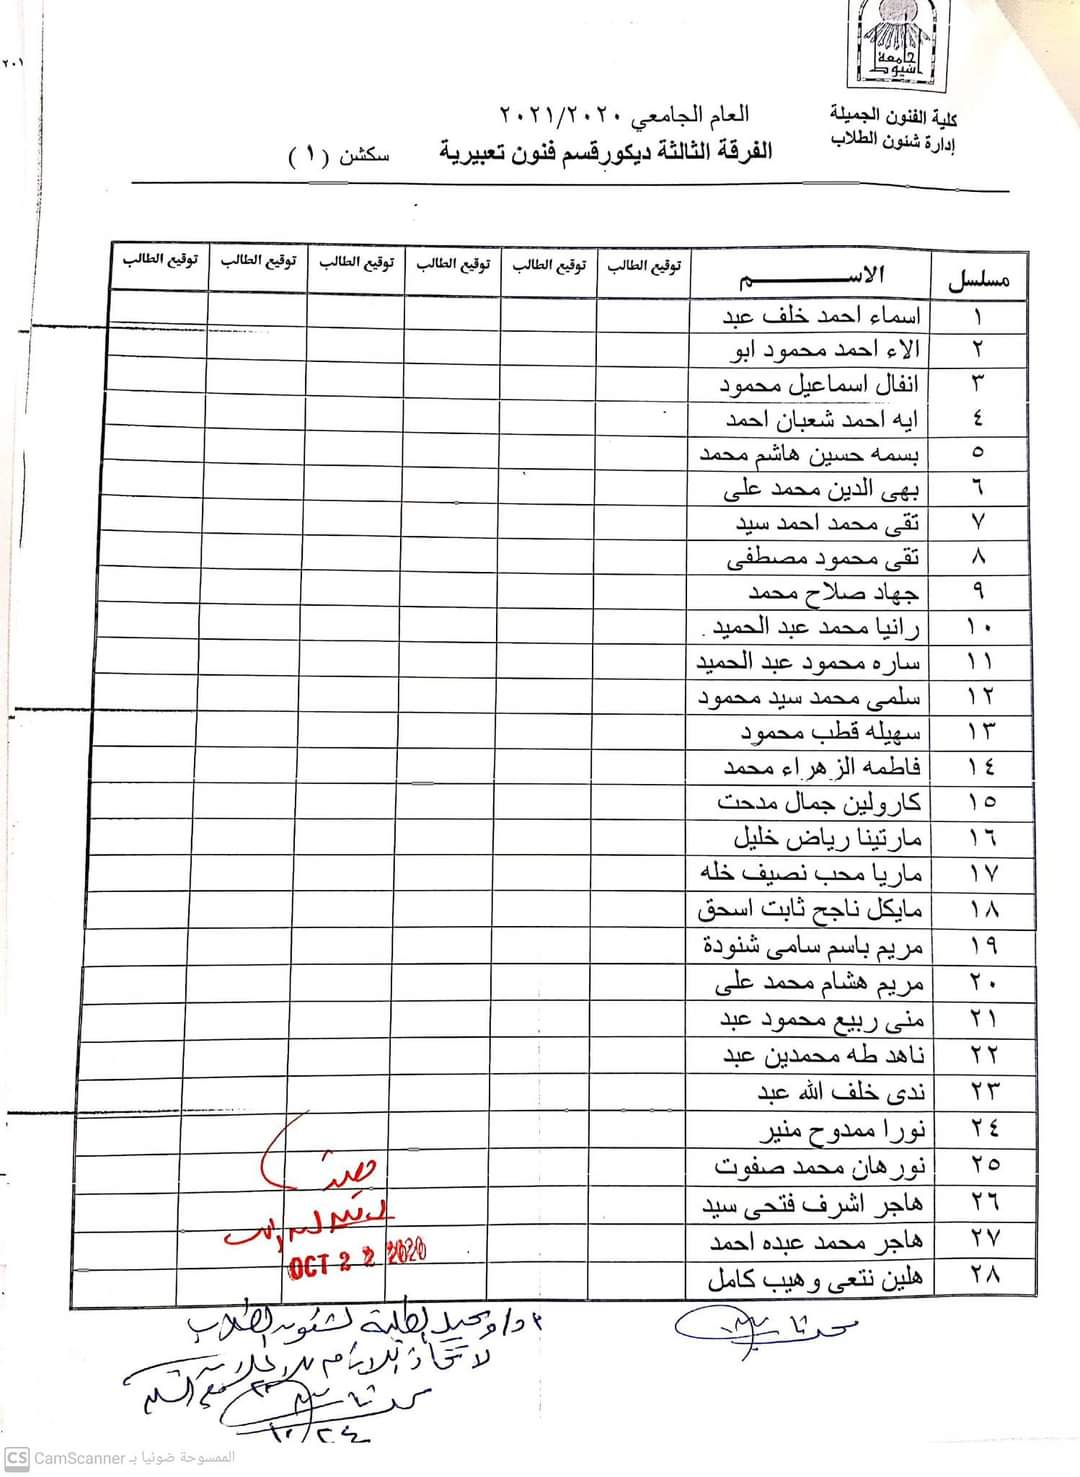 جامعة أسيوط
كلية الفنون الجميلة
إدارة شئون الطلاب
٢٠١
العام الجامعي ٢٠٢١/٢٠٢٠
الفرقة الثالثة ديكورقسم فنون تعبيرية سكشن (١)
مسلسل الاســـــم توقيع الطالب توقيع الطالب توقيع الطالب توقيع الطالب توقيع الطالب توقيع الطالب
١ اسماء احمد خلف عبد
٢ الاء احمد محمود ابو
٣ انفال اسماعيل محمود
٤ ايه احمد شعبان احمد
٥ بسمه حسين هاشم محمد
٦ بهى الدين محمد على
٧ تقى محمد احمد سيد
٨ تقى محمود مصطفى
٩ جهاد صلاح محمد
١٠ رانيا محمد عبد الحميد
١١ ساره محمود عبد الحميد
١٢ سلمى محمد سيد محمود
١٣ سهيله قطب محمود
١٤ فاطمه الزهراء محمد
١٥ كارولين جمال مدحت
١٦ مارتينا رياض خليل
١٧ ماريا محب نصيف خله
١٨ مايكل ناجح ثابت اسحق
١٩ مريم باسم سامى شنودة
٢٠ مريم هشام محمد على
٢١ منى ربيع محمود عبد
٢٢ ناهد طه محمدين عبد
٢٣ ندى خلف الله عبد
٢٤ نورا ممدوح منير
٢٥ نورهان محمد صفوت
٢٦ هاجر اشرف فتحى سيد
٢٧ هاجر محمد عبده احمد
٢٨ هلين نتعى وهيب كامل
OCT 22 2020
لشئون الطلاب
١٠/٢٤
CS CamScanner الممسوحة ضوئيا بـ